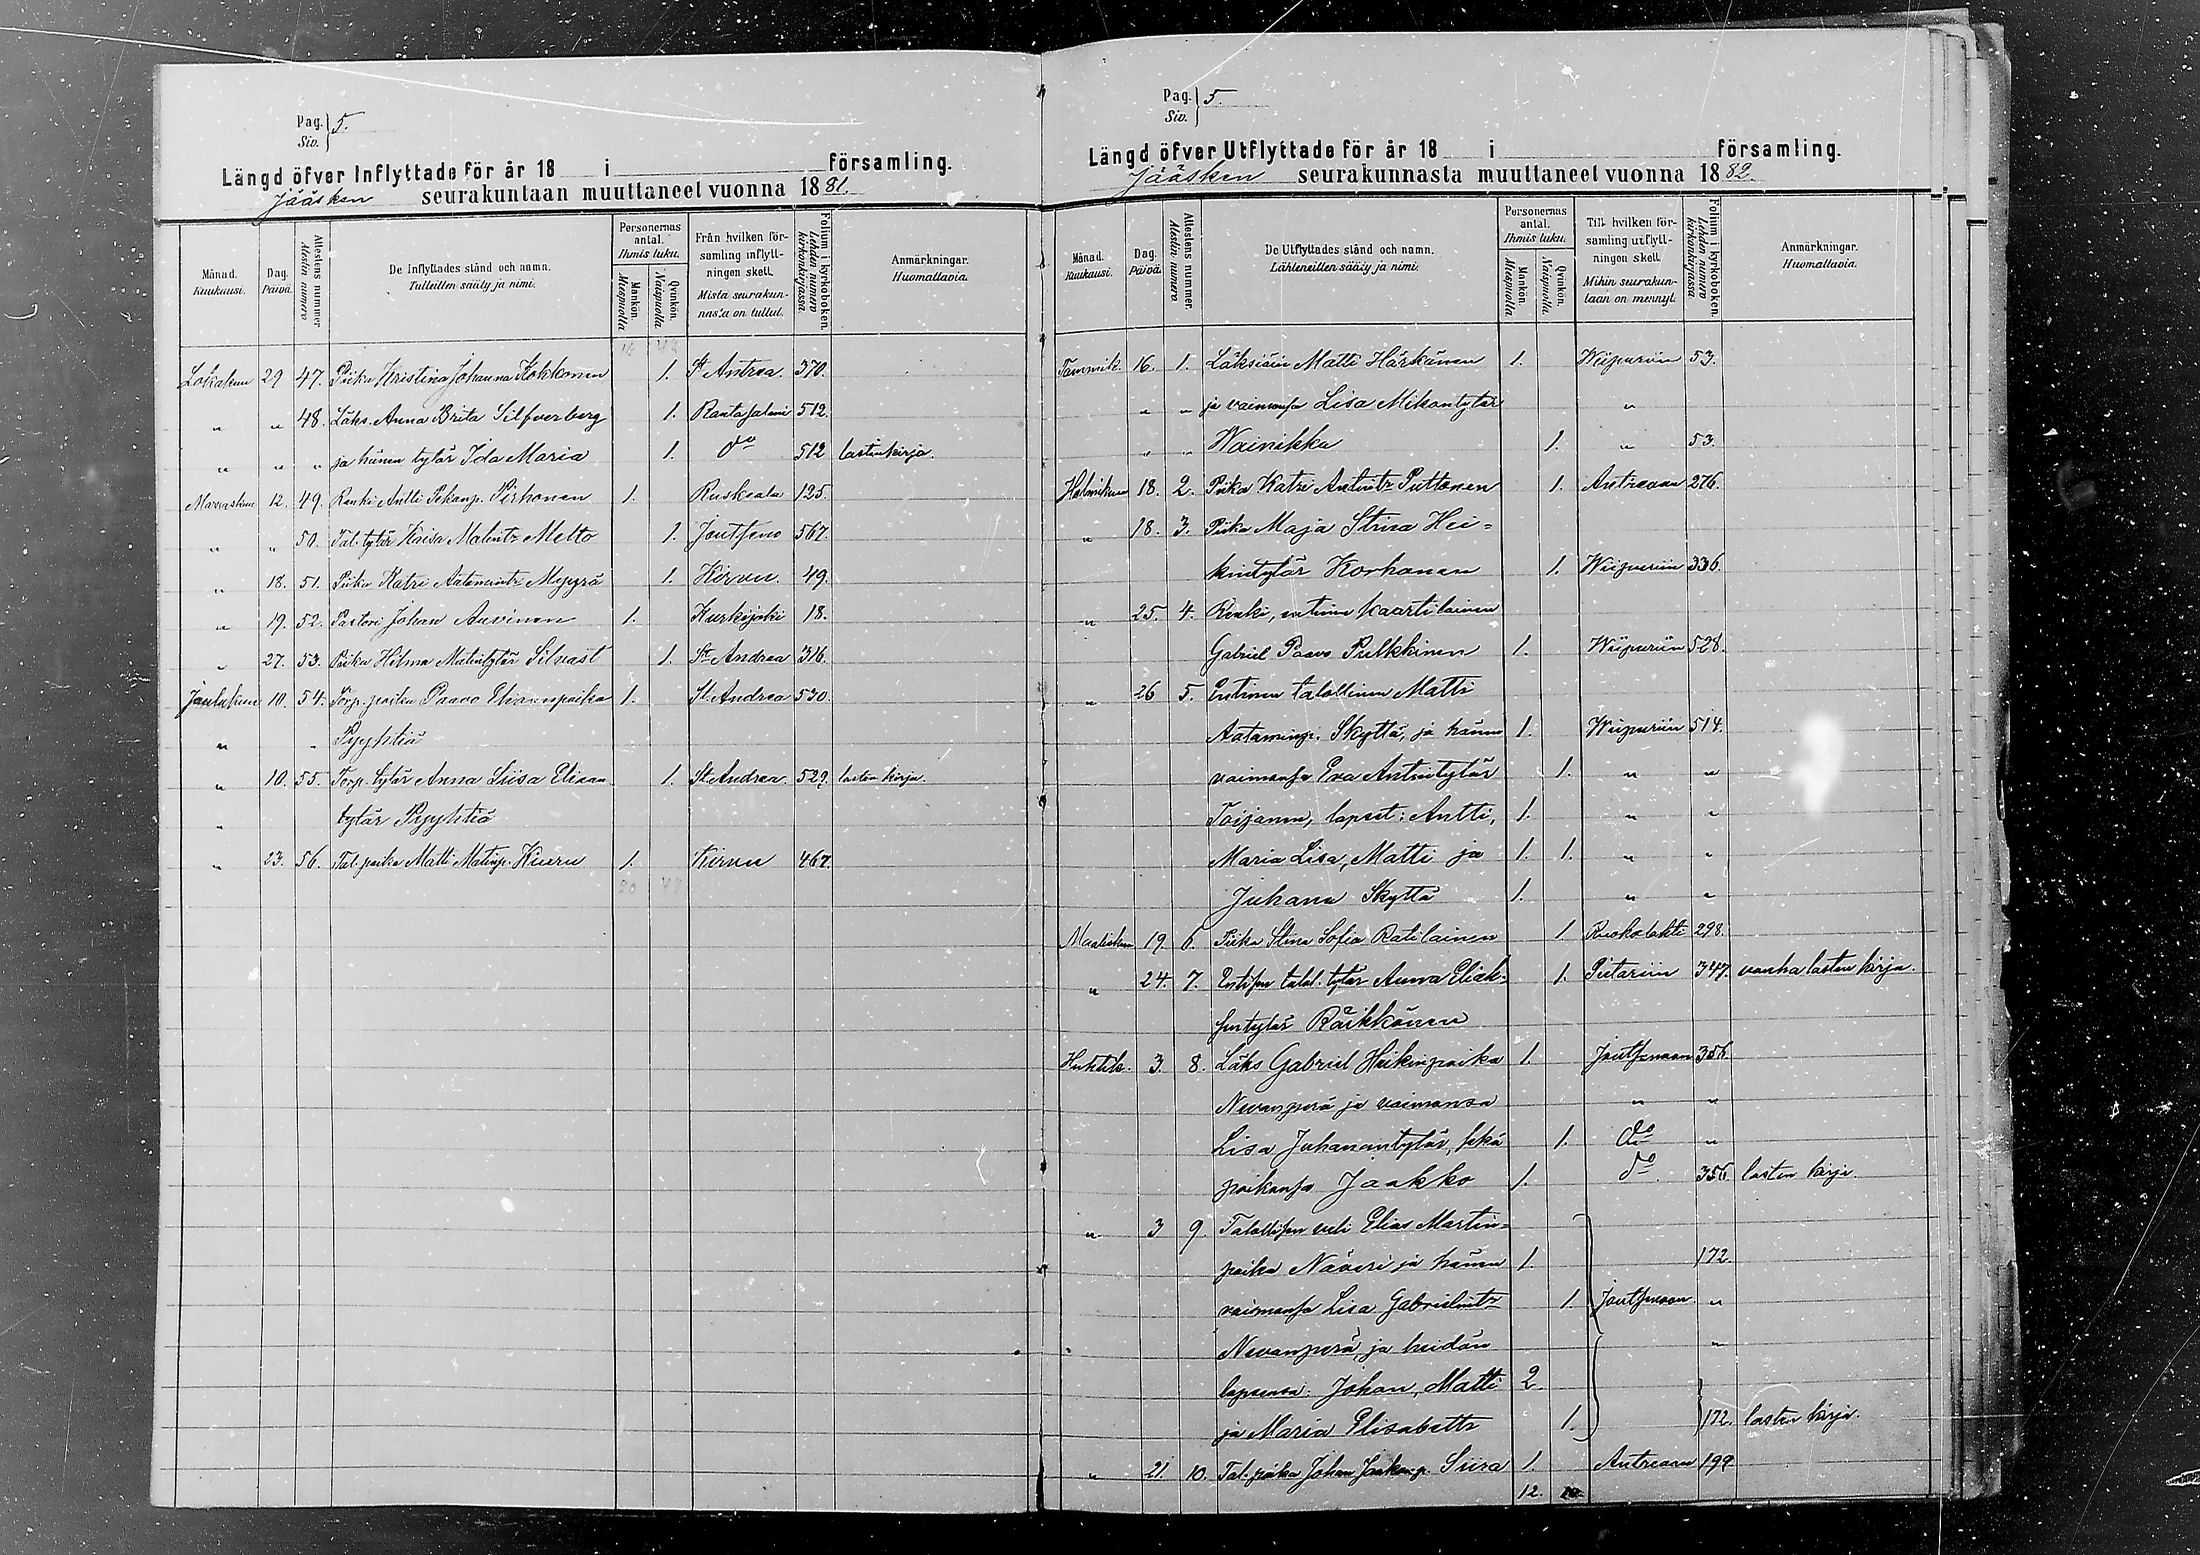 Pag. 5.
Siv.
Längd öfver Inflyttade för år 18 i församling.
Jääsken seurakuntaan muuttaneet vuonna 1881.
Månad. Kuukausi. Dag. Päivä. Attestens nummer Atestin numero De Inflyttades stånd och namn. Tulleitten sääty ja nimi. Personernas antal. Ihmis luku. Mankön. Miespuolia Qvinkön. Naispuolia Från hvilken församling inflyttningen skett. Mistä seurakunnasta on tullut. Folium i kyrkoboken. Lehden numero kirkonkirjassa. Anmärkningar. Huomattavia.
Lokakuu 29 47. Piika Kristina Johanna Kokkonen 1. St Antrea 370.
" " 48. Läks. Anna Brita Silfverberg 1. Rantasalmi 512.
" " " ja hänen tytär Ida Maria 1. do 512 lastenkirja.
Marraskuu 12. 49. Renki Antti Pekanp. Pirhonen 1. Ruskeala 125.
" " 50. Tal. tytär Kaisa Matintr Melto 1. Joutseno 567.
" 18. 51. Piika Katri Aatamintr Myyrä 1. Kirvu. 49.
" 19. 52. Pastori Johan Auvinen 1. Kurkijoki 18.
" 27. 53. Piika Hilma Matintytär Silvast 1. St Andrea 316.
Joulukuu 10. 54. Torp. poika Paavo Eliaanpoika 1. St Andrea 530.
" " Pyyhtiä
" 10. 55. Torp. tytär Anna Liisa Eliaan 1. St Andrea 529. lasten kirja.
" tytär Pyyhtiä
" 23. 56. Tal. poika Matti Matinp. Kiuru 1. Kirvu 467.
20 48
Pag. 5.
Siv.
Längd öfver Utflyttade för år 18 i församling.
Jääsken seurakunnasta muuttaneet vuonna 1882.
Månad. Kuukausi. Dag. Päivä. Attestens nummer. Atestin numero De Utflyttades stånd och namn. Lähteneitten sääty ja nimi. Personernas antal. Ihmis luku. Mankön. Miespuolia Qvinkön. Naispuolia. Till hvilken församling utflyttningen skett. Mihin seurakuntaan on mennyt. Folium i kyrkoboken. Lehden numero kirkonkirjassa Anmärkningar. Huomattavia.
Tammik. 16. 1. Läksiäin Matti Härkänen 1. Wiipuriin 53.
" " ja vaimonsa Lisa Mikontytär "
" " Wainikka 1. " 53.
Helmikuu 18. 2. Piika Katri Antintr Puttonen 1. Antreaan 276.
" 18. 3. Piika Maja Stina Hei-
kintytär Korhonen 1. Wiipuriin 336.
" 25. 4. Renki, entinen kaartilainen
Gabriel Paavo Pulkkinen 1. Wiipuriin 528.
" 26 5. Entinen talollinen Matti
Aataminp. Skyttä, ja hänen 1. Wiipuriin 514.
vaimonsa Eva Antintytär 1. " "
Toijanen, lapset: Antti, 1. " "
Maria Lisa, Matti ja 1. 1. " "
Juhana Skyttä 1. " "
Maaliskuu 19. 6. Piika Stina Sofia Ratilainen 1 Ruokolahti 298.
" 24. 7. Entisen talol. tytär Anna Eliak- 1. Pietariin 347. vanha lasten kirja.
sentytär Räikkönen
Huhtik. 3. 8. Läks Gabriel Heikinpoika 1. Joutsenoon 356.
Nevanperä ja vaimonsa " "
Lisa Juhanantytär, sekä 1. do "
poikansa Jaakko 1. do 356. lasten kirja.
" 3 9. Talollisen veli Elias Martin-
poika Näveri ja hänen 1. 172.
vaimonsa Lisa Gabrielintr 1. Joutsenoon "
Nevanperä, ja heidän "
lapsensa: Johan, Matti 2.
ja Maria Elisabetti 1. 172. lasten kirja.
" 21. 10. Tal. poika Johan Jaakonp. Siira 1. Antreaan 199
12. 10.